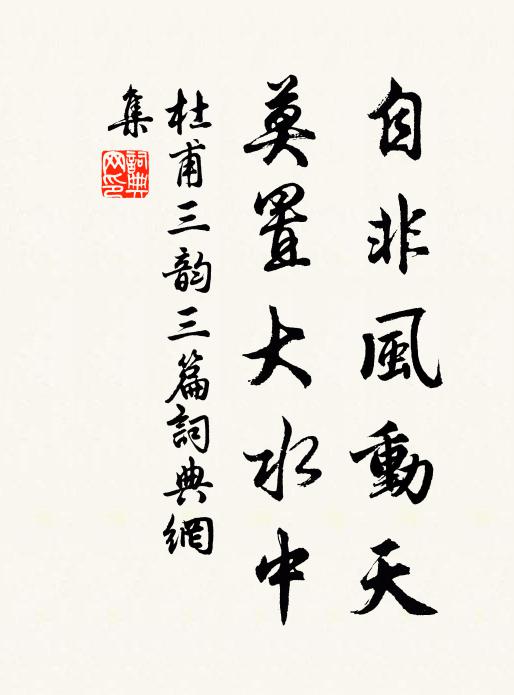 自非風動天
莫置大水中
杜甫三韵三篇詞典網
集
詞典
网印